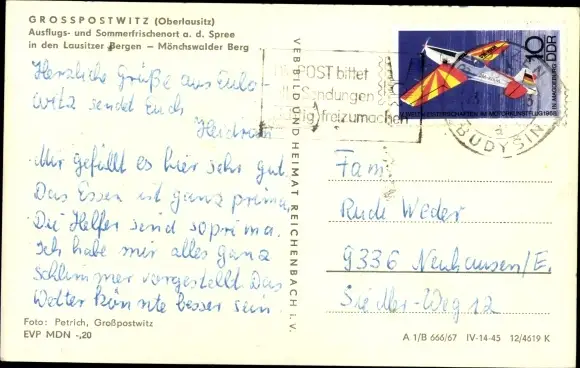 GROSSPOSTWITZ (Oberlausitz)
Ausflugs- und Sommerfrischenort a. d. Spree
in den Lausitzer Bergen — Mönchswalder Berg
Herzliche Grüße aus Eulo-
witz sendet Euch
Heidrun
Mir gefällt es hier sehr gut.
Das Essen ist ganz prima.
Die Helfer sind so prima.
Ich habe mir alles ganz
schlimmer vorgestellt. Das
Wetter könnte besser sein.
Foto: Petrich, Großpostwitz
EVP MDN -,20
VEB BILD UND HEIMAT REICHENBACH i. V.
POST bittet
Sendungen
freizumachen
10
DDR
WELTMEISTERSCHAFTEN IM MOTORKUNSTFLUG 1968
IN MAGDEBURG
BUDYŠIN
a
Fam.
Rudi Weder
9336 Neuhausen/E.
Siedler-Weg 12
A 1/B 666/67 IV-14-45 12/4619 K